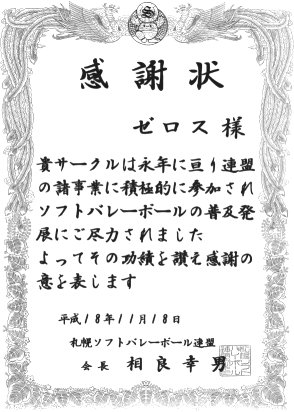 感謝状
ゼロス様
貴サークルは永年に亘り連盟
の諸事業に積極的に参加され
ソフトバレーボールの普及発
展にご尽力されました
よってその功績を讃え感謝の
意を表します
平成18年11月18日
札幌ソフトバレーボール連盟
会長 相良幸男